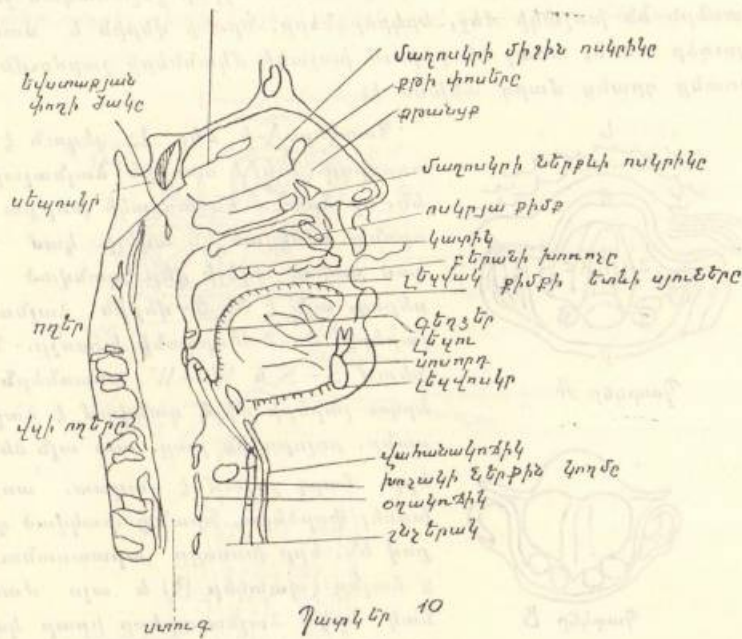 եվստաքյան
փողի ծակը
սեպոսկր
ողեր
վզի ողերը
մաղոսկրի միջին ոսկրիկը
քթի փոսերը
քթանցք
մաղոսկրի ներքևի ոսկրիկը
ոսկրյա քիմք
կատիկ
բերանի խոռոչը
լեզվակ քիմքի ետևի սյուները
գեղձեր
լեզու
կոկորդ
լեզվոսկր
վահանակռճիկ
խռչակի ներքին կողմը
օղակռճիկ
շնչերակ
ստուգ
Պատկեր 10